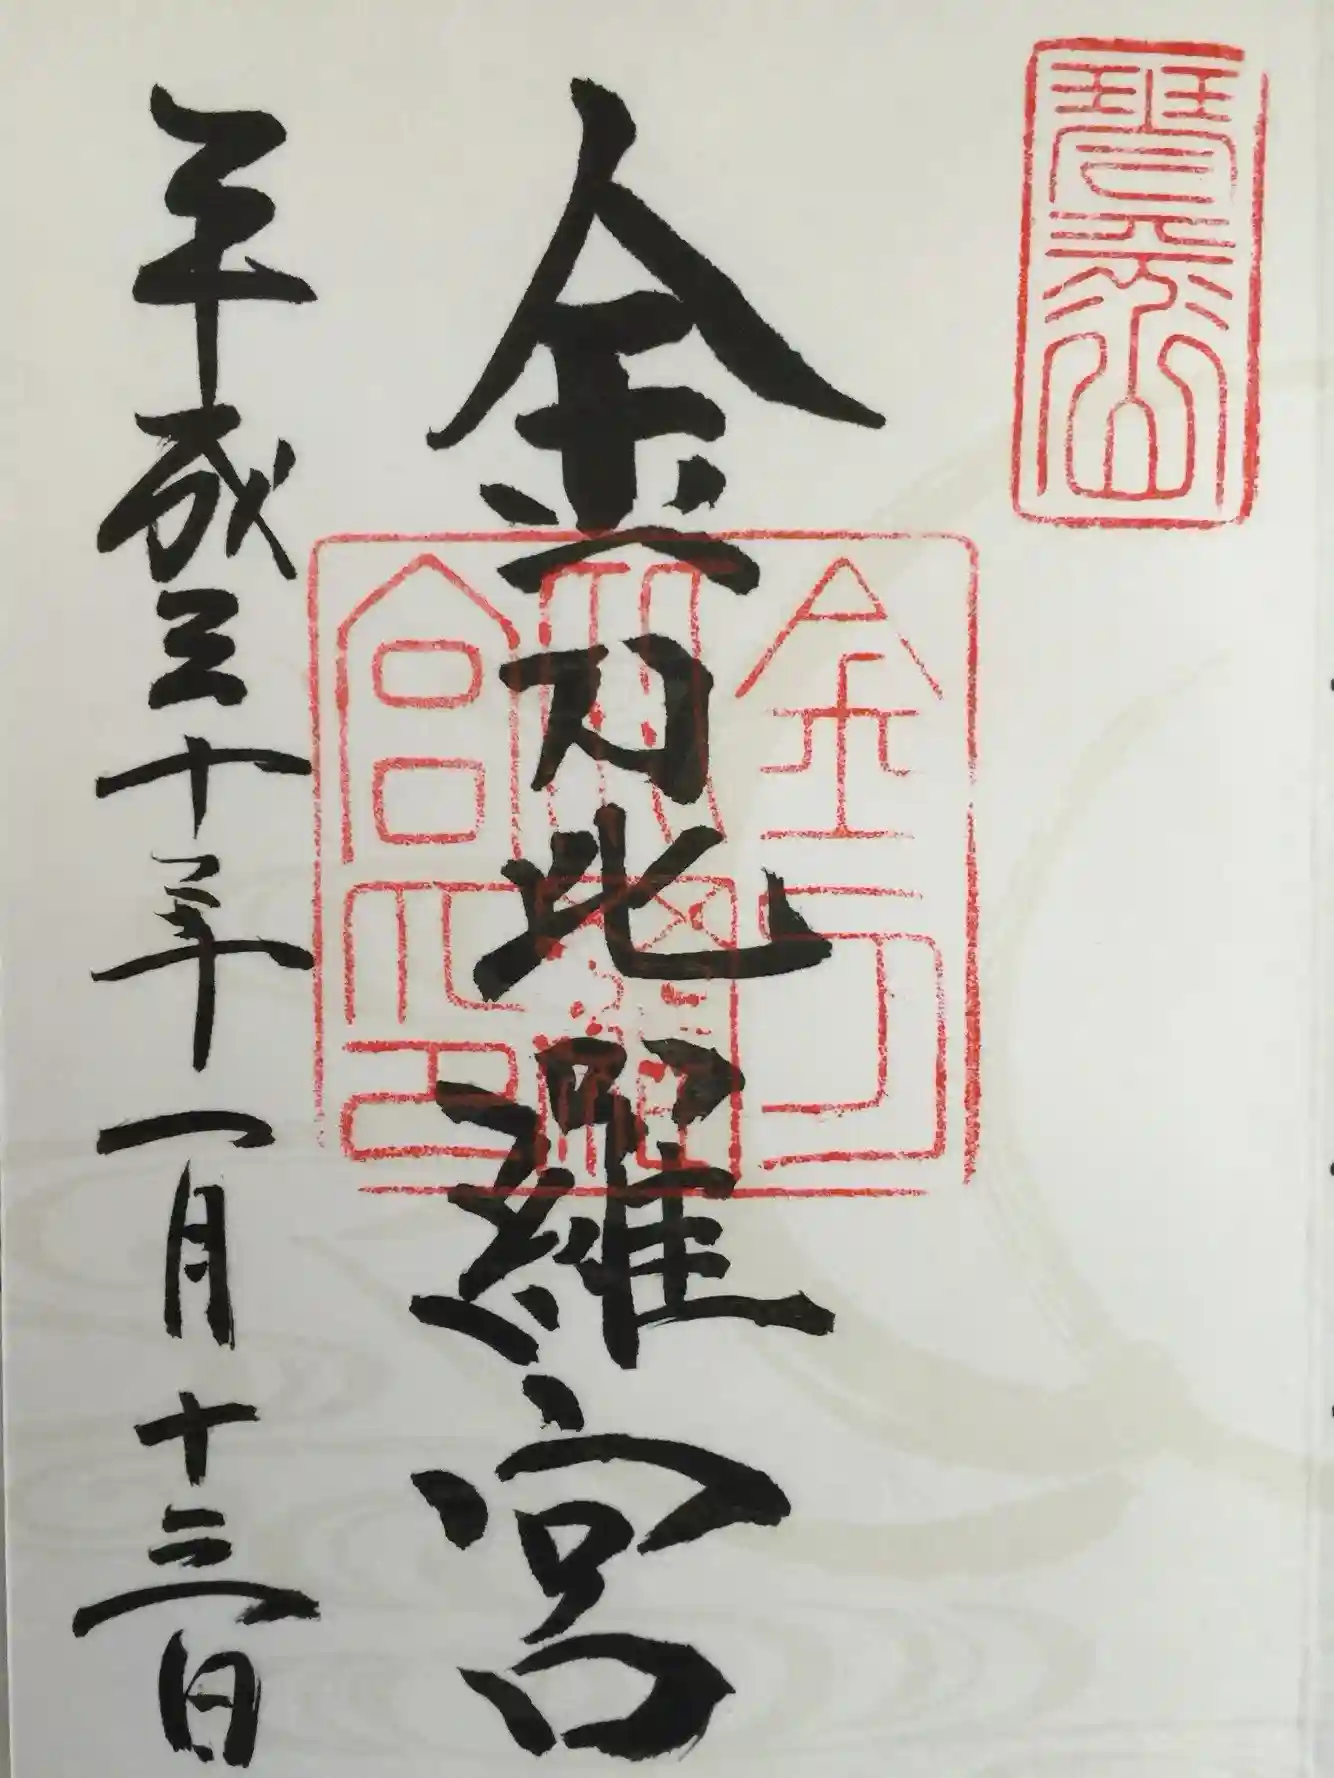 琴平山
金刀比羅宮
金刀
比羅
宮印
平成三十年一月十三日